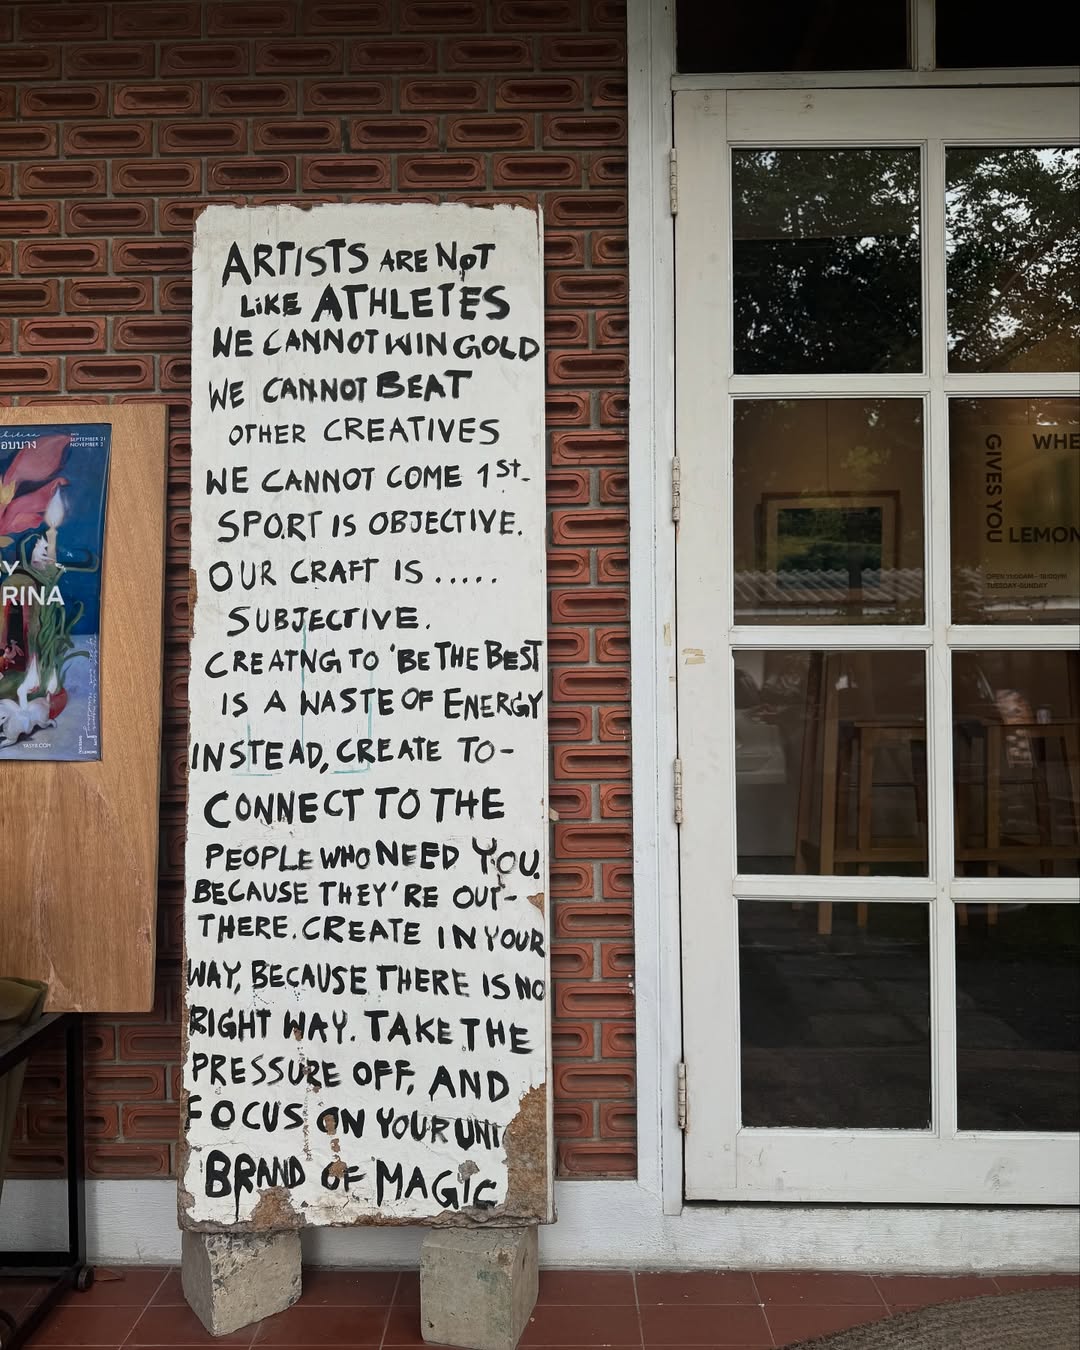 ARTISTS ARE NOT
LIKE ATHLETES
WE CANNOT WIN GOLD
WE CANNOT BEAT
OTHER CREATIVES
WE CANNOT COME 1st.
SPORT IS OBJECTIVE.
OUR CRAFT IS .....
SUBJECTIVE.
CREATNG TO 'BE THE BEST
IS A WASTE OF ENERGY
INSTEAD, CREATE TO-
CONNECT TO THE
PEOPLE WHO NEED YOU.
BECAUSE THEY'RE OUT-
THERE. CREATE IN YOUR
WAY, BECAUSE THERE IS NO
RIGHT WAY. TAKE THE
PRESSURE OFF, AND
FOCUS ON YOUR UNI
BRAND OF MAGIC
SEPTEMBER 21
NOVEMBER 2
อบบาง
Y
RINA
YASYR.COM
WHE
GIVES YOU
LEMON
OPEN 11:00AM - 18:00PM
TUESDAY-SUNDAY